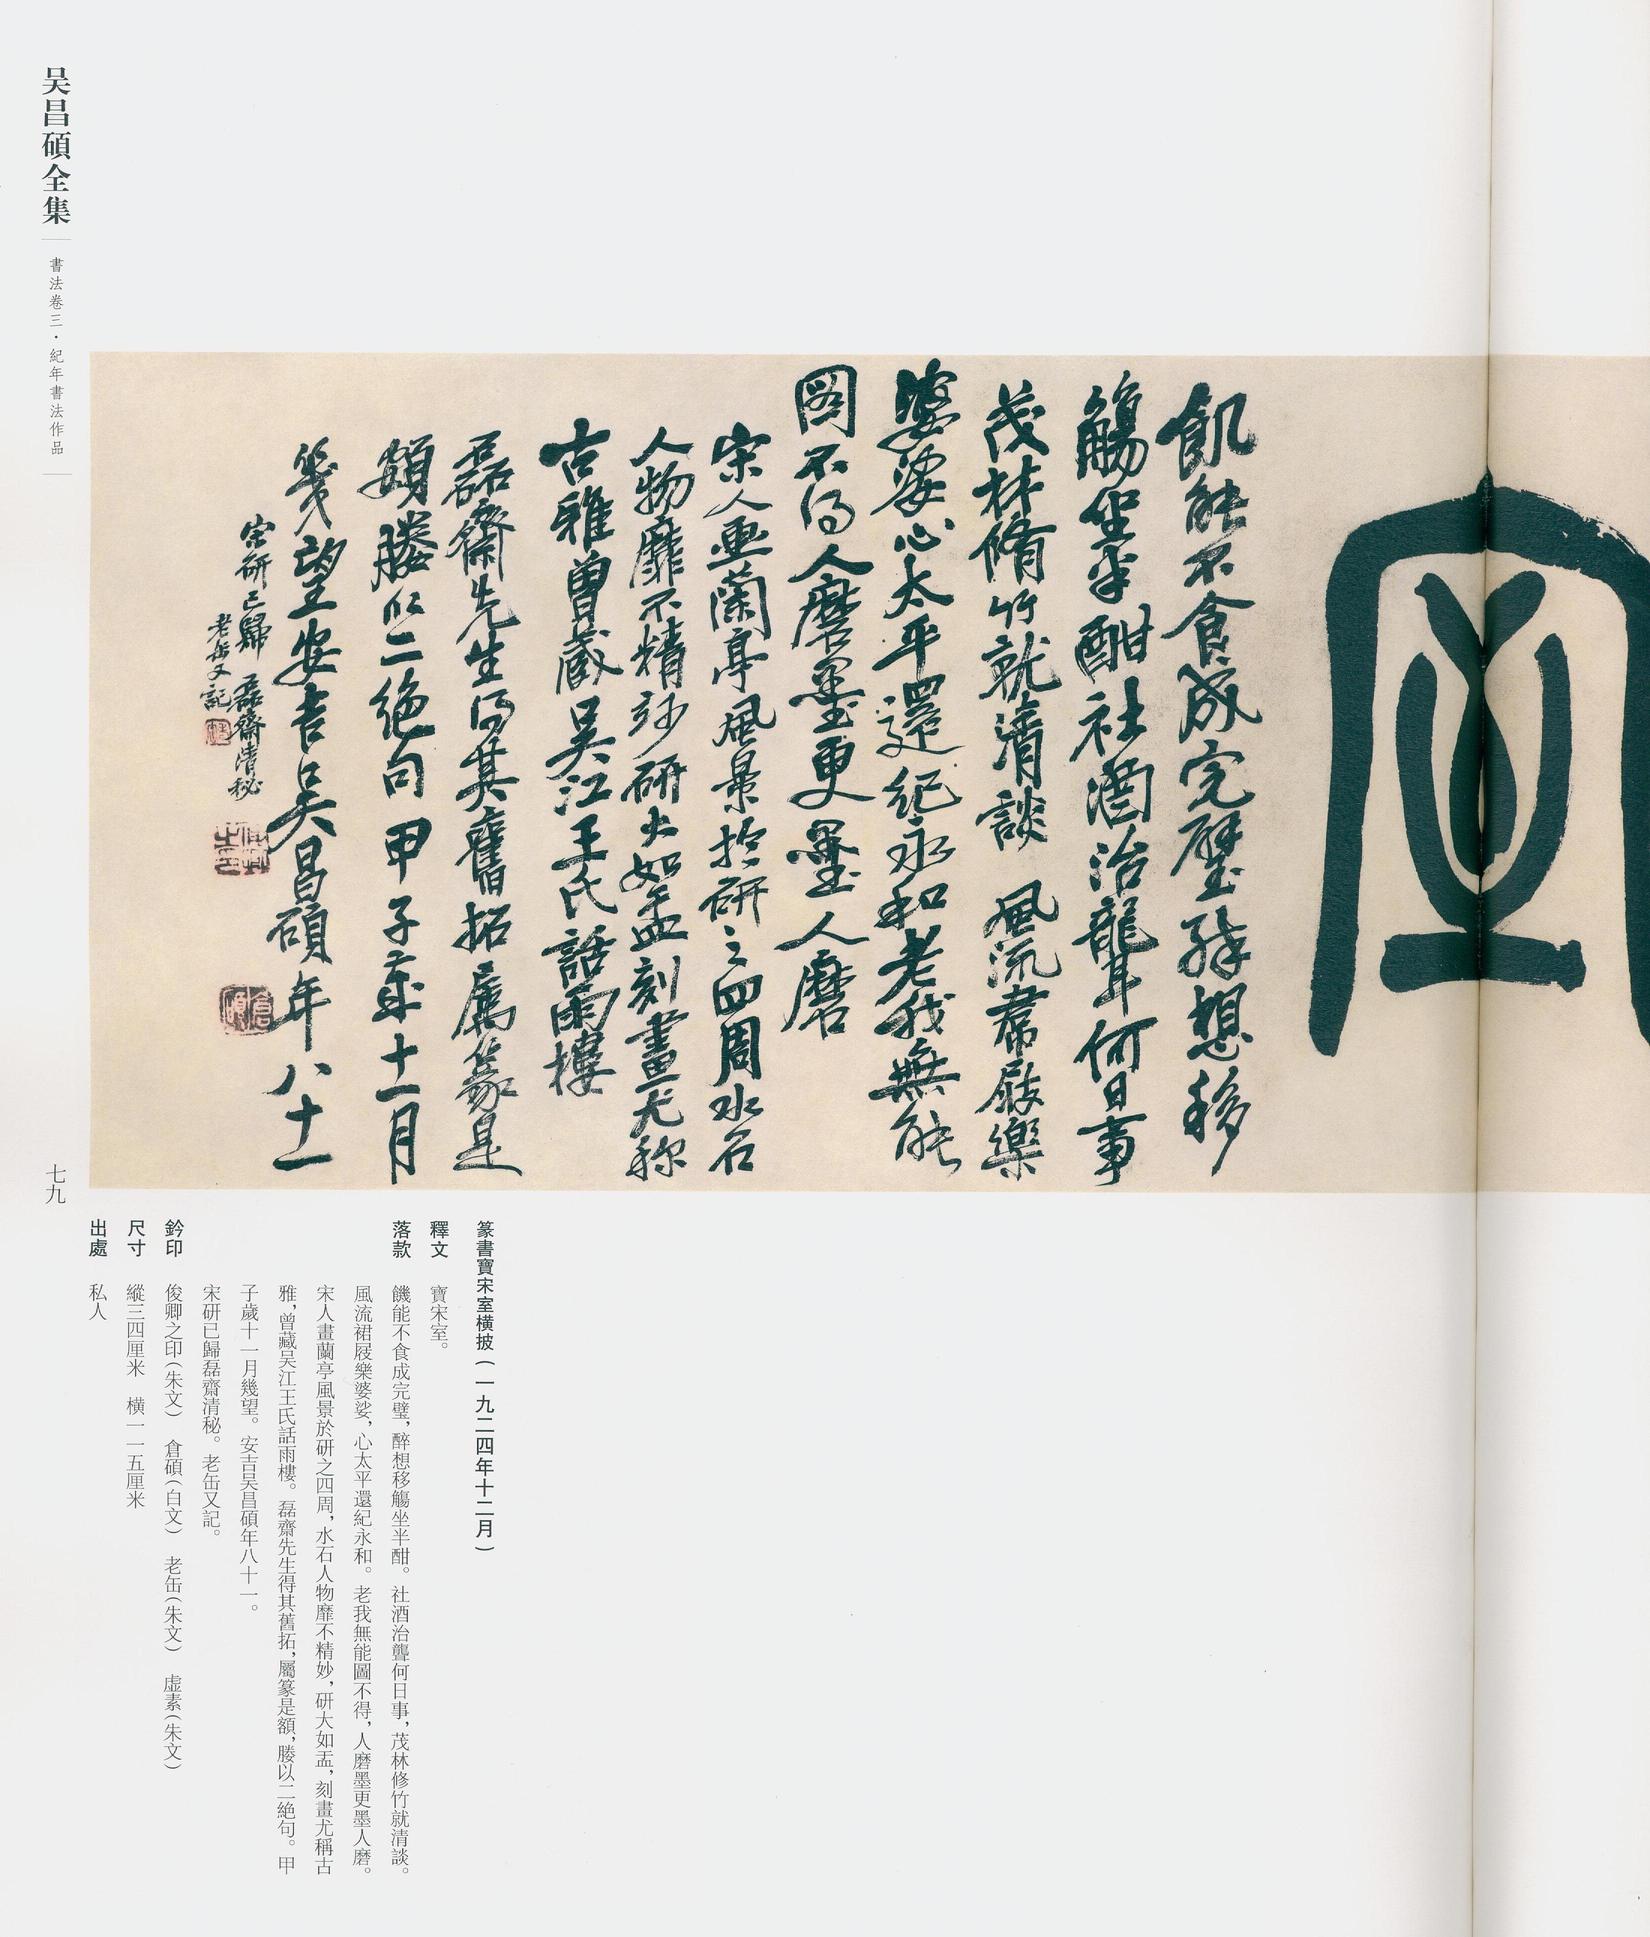 吴昌碩全集
書法卷三·紀年書法作品
室
飢能不食成完璧醉想移
觴坐半酣社酒治聾何日事
茂林脩竹就清談 風流帬屐樂
婆娑心太平還紀永和老我無能
圖不得人磨墨更墨人磨
宋人畫蘭亭風景於研之四周水石
人物靡不精妙研大如盂刻畫尤称
古雅曾藏吴江王氏話雨樓
磊齋先生得其舊拓屬篆是
額媵以二絶句甲子歲十一月
幾望安吉吴昌碩年八十一
宋研已歸磊齋清秘
老缶又記
七九
篆書寶宋室横披(一九二四年十二月)
釋文 寶宋室。
落款 饑能不食成完璧,醉想移觴坐半酣。社酒治聾何日事,茂林修竹就清談。
風流裙屐樂婆娑,心太平還紀永和。老我無能圖不得,人磨墨更墨人磨。
宋人畫蘭亭風景於研之四周,水石人物靡不精妙,研大如盂,刻畫尤稱古
雅,曾藏吴江王氏話雨樓。磊齋先生得其舊拓,屬篆是額,媵以二絶句。甲
子歲十一月幾望。安吉吴昌碩年八十一。
宋研已歸磊齋清秘。老缶又記。
鈐印 俊卿之印(朱文) 倉碩(白文) 老缶(朱文) 虚素(朱文)
尺寸 縱三四厘米 横一一五厘米
出處 私人